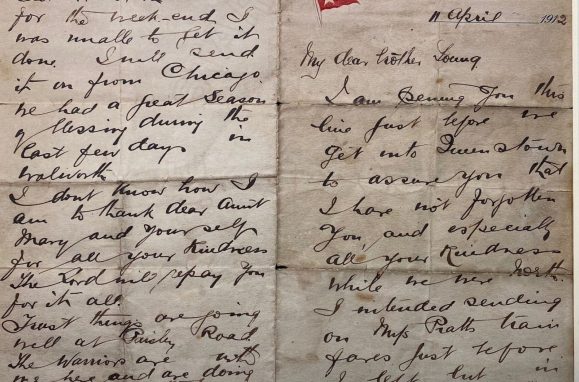 11 April 1912
My dear brother Young
I am penning you this
line just before we
get into Queenstown
to assure you that
I have not forgotten
you, and especially
all your kindness
while we were North.
I intended sending
on Miss Pratts train
fares just before
I left but in
for the week-end I
was unable to get it
done. I will send
it on from Chicago
we had a great season
of blessing during the
last few days in
Walworth
I dont know how I
am to thank dear Aunt
Mary and yourself
for all your kindness
The Lord will repay you
for it all.
Trust things are going
well at Paisley Road.
The Warriors are with
me here and are doing